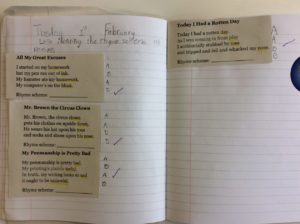 Tuesday 1st February
Los: Identify the rhyme scheme in
poems.
All My Great Excuses
I started on my homework
but my pen ran out of ink.
My hamster ate my homework.
My computer's on the blink.
Rhyme scheme
A
B
A
B
Mr. Brown the Circus Clown
Mr. Brown, the circus clown
puts his clothes on upside down.
He wears his hat upon his toes
and socks and shoes upon his nose.
Rhyme scheme
A
A
B
B
My Penmanship is Pretty Bad
My penmanship is pretty bad.
My printing's plainly awful.
In truth, my writing looks so sad
it ought to be unlawful.
Rhyme scheme
A
B
A
B
Today I Had a Rotten Day
Today I had a rotten day
As I was coming in from play
I accidentally stubbed my toes
and tripped and fell and whacked my nose.
Rhyme scheme
A
A
B
B